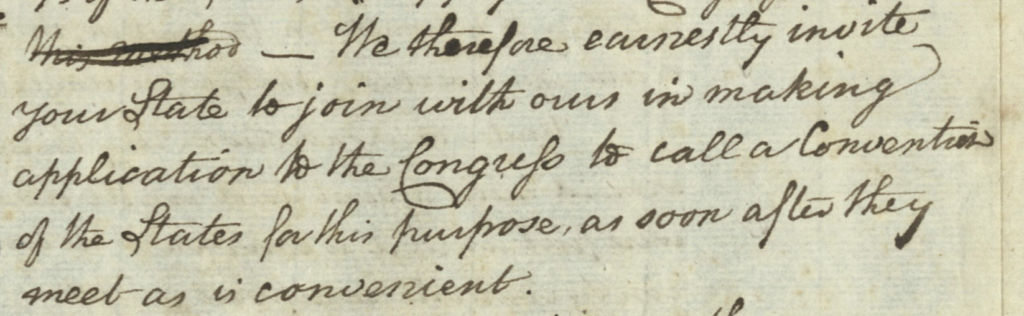 This method — We therefore earnestly invite
your State to join with ours in making
application to the Congress to call a Convention
of the States for this purpose, as soon after they
meet as is convenient.